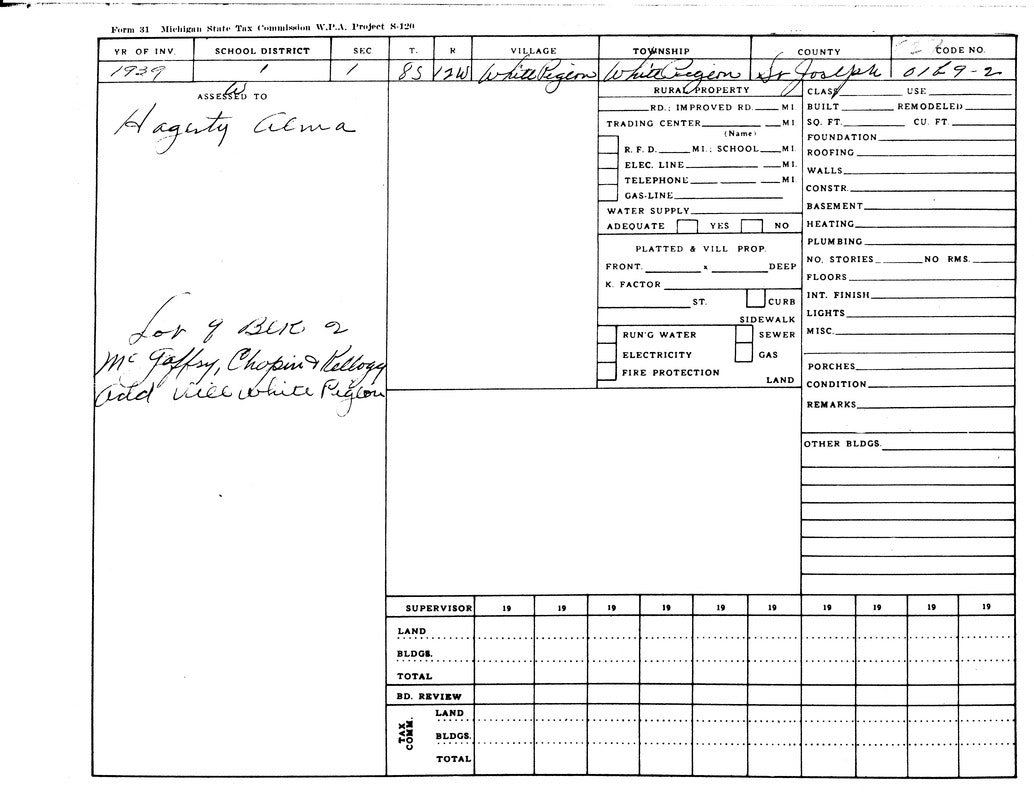 Form 31 Michigan State Tax Commission W.P.A. Project S-120
YR OF INV. SCHOOL DISTRICT SEC T. R VILLAGE TOWNSHIP COUNTY CODE NO.
1939 1 1 8S 12W White Pigeon White Pigeon St Joseph
ASSESSED TO
Hagerty Alma
Lot 9 BLK 2
Mc Gaffsy, Chopin & Kellogg
Add Vill White Pigeon
RURAL PROPERTY
RD.; IMPROVED RD. MI.
TRADING CENTER MI
(Name)
R. F. D. MI.; SCHOOL MI.
ELEC. LINE MI.
TELEPHONE MI.
GAS-LINE
WATER SUPPLY
ADEQUATE YES NO
PLATTED & VILL PROP.
FRONT. x DEEP
K. FACTOR
ST. CURB
SIDEWALK
RUN'G WATER SEWER
ELECTRICITY GAS
FIRE PROTECTION
LAND
CLASS USE
BUILT REMODELED
SQ. FT. CU. FT.
FOUNDATION
ROOFING
WALLS
CONSTR.
BASEMENT
HEATING
PLUMBING
NO. STORIES NO RMS.
FLOORS
INT. FINISH
LIGHTS
MISC.
PORCHES
CONDITION
REMARKS
OTHER BLDGS.
SUPERVISOR 19 19 19 19 19 19 19 19 19 19
LAND
BLDGS.
TOTAL
BD. REVIEW
TAX COMM.
LAND
BLDGS.
TOTAL